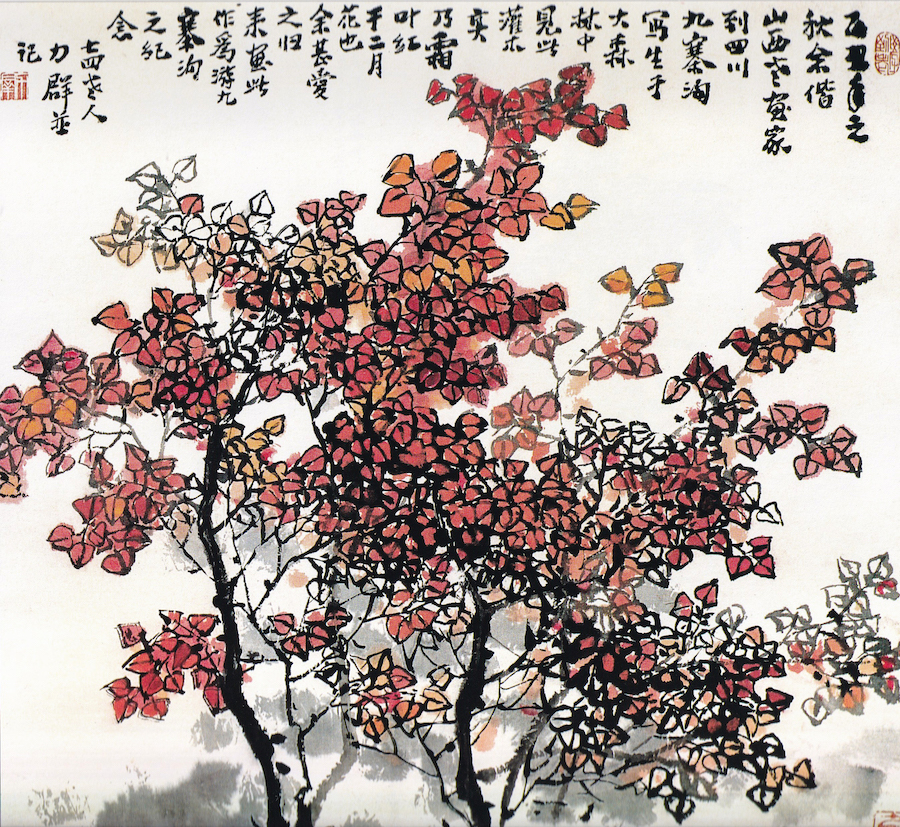 乙丑年之
秋余偕
山西老画家
到四川
九寨沟
写生于
大森
林中
見此
灌木
实
乃霜
叶红
于二月
花也
余甚愛
之归
来画此
作為游九
寨沟
之纪
念
七四老人
力群並
记